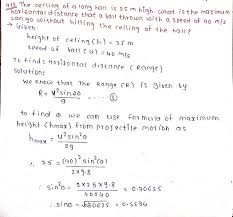 Q13 The ceiling of a long hall is 25 m high. what is the maximum
horizontal distance that a ball thrown with a speed of 40 m/s
can go without hitting the ceiling of the hall?
Given:
height of ceiling (h) = 25 m
speed of ball (u) = 40 m/s
To find: Horizontal distance (Range)
Solution:
We know that the Range (R) is given by
R = u² sin2θ / g
To find θ we can use Formula of maximum
height (hmax) from projectile motion as
hmax = u² sin²θ / 2g
∴ 25 = (40)² sin²(θ) / 2×9.8
∴ sin²θ = 2×25×9.8 / 40×40 = 0.30625
∴ sinθ = √0.30625 = 0.5534